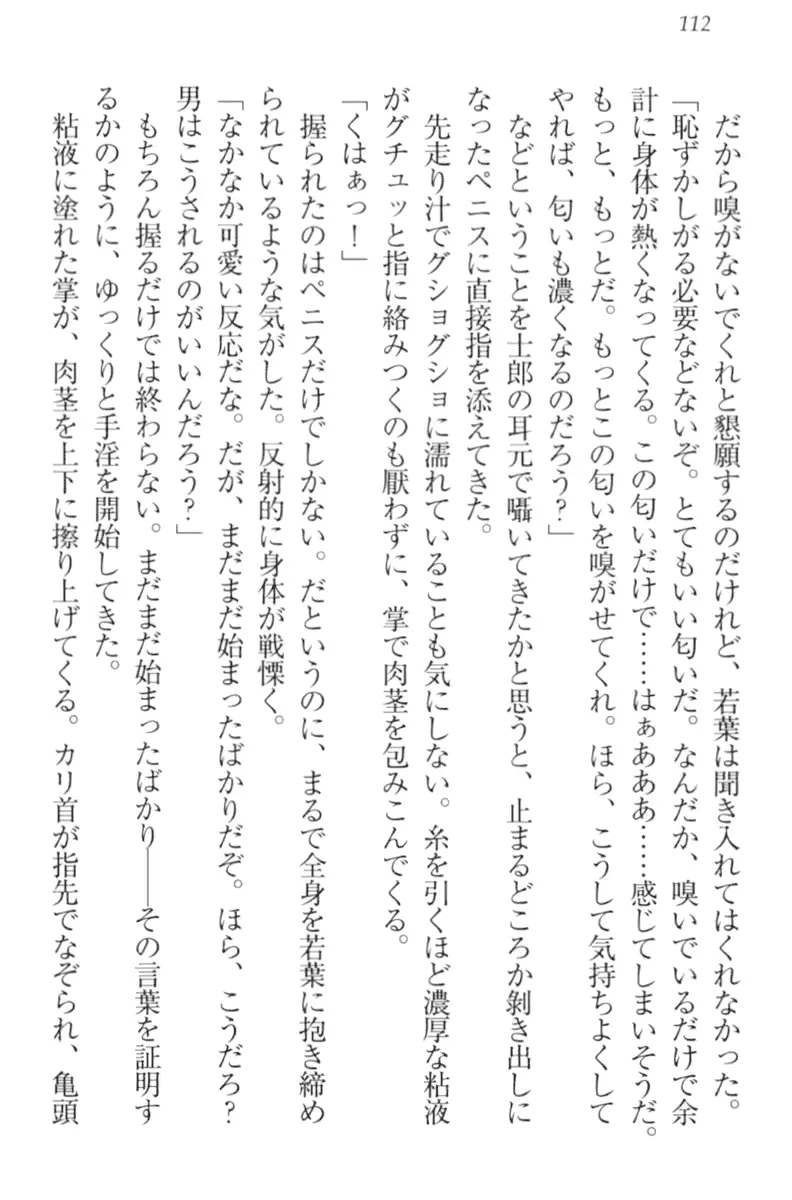 112
だから嗅がないでくれと懇願するのだけれど、若葉は聞き入れてはくれなかった。
「恥ずかしがる必要などないぞ。とてもいい匂いだ。なんだか、嗅いでいるだけで余
計に身体が熱くなってくる。この匂いだけで……はぁあああ……感じてしまいそうだ。
もっと、もっとだ。もっとこの匂いを嗅がせてくれ。ほら、こうして気持ちよくして
やれば、匂いも濃くなるのだろう?」
などということを士郎の耳元で囁いてきたかと思うと、止まるどころか剝き出しに
なったペニスに直接指を添えてきた。
先走り汁でグショグショに濡れていることも気にしない。糸を引くほど濃厚な粘液
がグチュッと指に絡みつくのも厭わずに、掌で肉茎を包みこんでくる。
「くはぁっ!」
握られたのはペニスだけでしかない。だというのに、まるで全身を若葉に抱き締め
られているような気がした。反射的に身体が戦慄く。
「なかなか可愛い反応だな。だが、まだまだ始まったばかりだぞ。ほら、こうだろ?
男はこうされるのがいいんだろう?」
もちろん握るだけでは終わらない。まだまだ始まったばかり――その言葉を証明す
るかのように、ゆっくりと手淫を開始してきた。
粘液に塗れた掌が、肉茎を上下に擦り上げてくる。カリ首が指先でなぞられ、亀頭